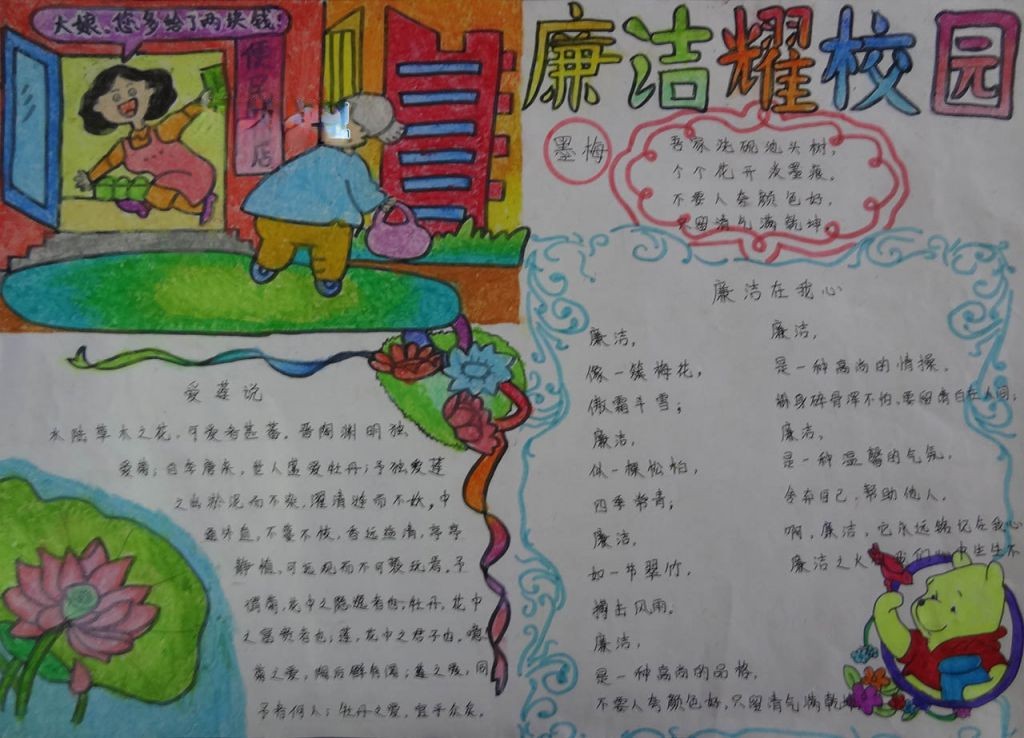 大娘、您多给了两块钱!
便民
店
廉洁耀校园
墨梅
吾家洗砚池头树,
个个花开淡墨痕。
不要人夸颜色好,
只留清气满乾坤
廉洁在我心
廉洁,
像一簇梅花,
傲霜斗雪;
廉洁,
似一棵松柏,
四季常青;
廉洁,
如一节翠竹,
搏击风雨。
廉洁,
是一种高尚的品格,
不要人夸颜色好,只留清气满乾坤
廉洁,
是一种高尚的情操,
粉身碎骨浑不怕、要留清白在人间;
廉洁,
是一种温馨的气氛,
舍弃自己,帮助他人。
啊,廉洁,它永远铭记在我心
廉洁之火 我们心中生生不
爱莲说
水陆草木之花,可爱者甚蕃。晋陶渊明独
爱菊;自李唐来,世人盛爱牡丹;予独爱莲
之出淤泥而不染,濯清涟而不妖,中
通外直,不蔓不枝,香远益清,亭亭
静植,可远观而不可亵玩焉。予
谓菊,花中之隐逸者也;牡丹,花中
之富贵者也;莲,花中之君子也。噫,
菊之爱,陶后鲜有闻;莲之爱,同
予者何人;牡丹之爱,宜乎众矣。